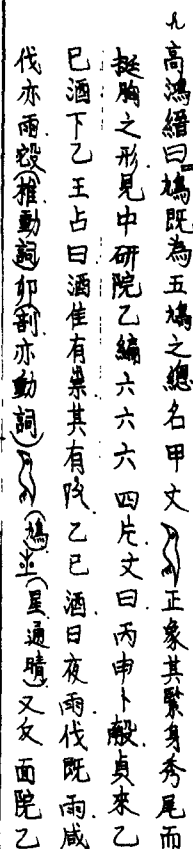 高鴻縉曰鳩既為五鳩之總名甲文正象其緊身秀尾而
挺胸之形見中研院乙編六六六四片文曰丙申卜㱿貞來乙
巳酒下乙王占曰酒隹有祟其有乙巳酒日夜雨伐既雨咸
伐亦雨(推動詞)卯(剖亦動詞)(鳩)(星通晴)又反面院乙